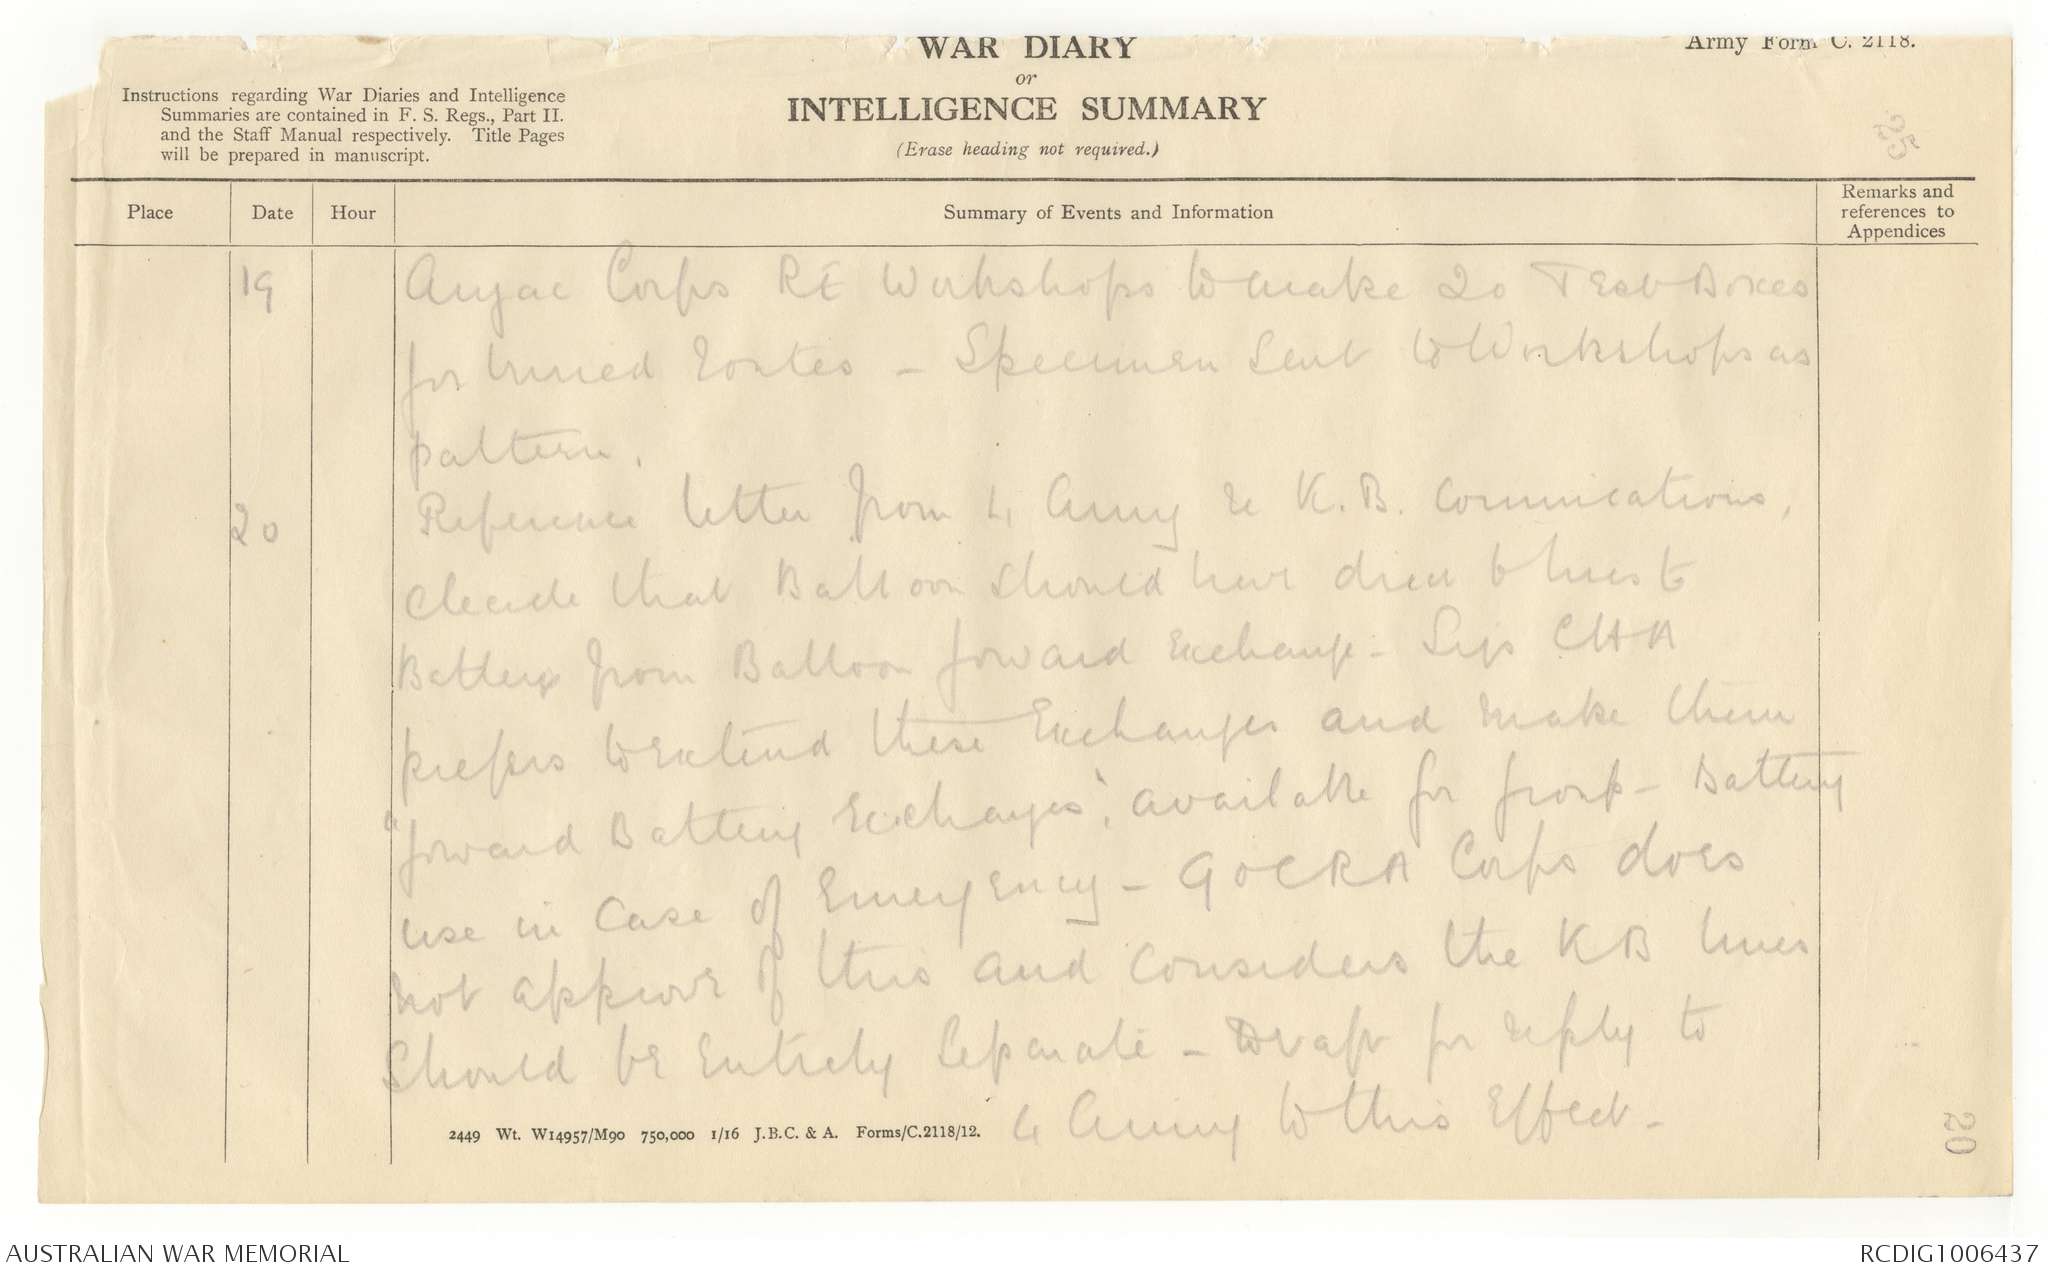 WAR DIARY
or
INTELLIGENCE SUMMARY
(Erase heading not required.)
Army Form C. 2118.
Instructions regarding War Diaries and Intelligence
Summaries are contained in F. S. Regs., Part II.
and the Staff Manual respectively. Title Pages
will be prepared in manuscript.
25
Place
Date
Hour
Summary of Events and Information
Remarks and
references to
Appendices
19
Anzac Corps RE Workshops to make 20 Test Boxes
for buried routes - Specimen sent to Workshops as
pattern.
20
Reference letter from 4 Army re K.B. Comunications,
decide that Balloon should have direct lines to
Battery from Balloon forward Exchange - Sigs CHA
prefers to extend these Exchanges and make them
"forward Battery Exchanges", available for group - Battery
use in case of Emergency - GOCRA Corps does
not approve of this and considers the KB lines
should be entirely separate - Draft for reply to
4 Army to this Effect -
2449 Wt. W14957/M90 750,000 1/16 J.B.C. & A. Forms/C.2118/12.
20
AUSTRALIAN WAR MEMORIAL
RCDIG1006437